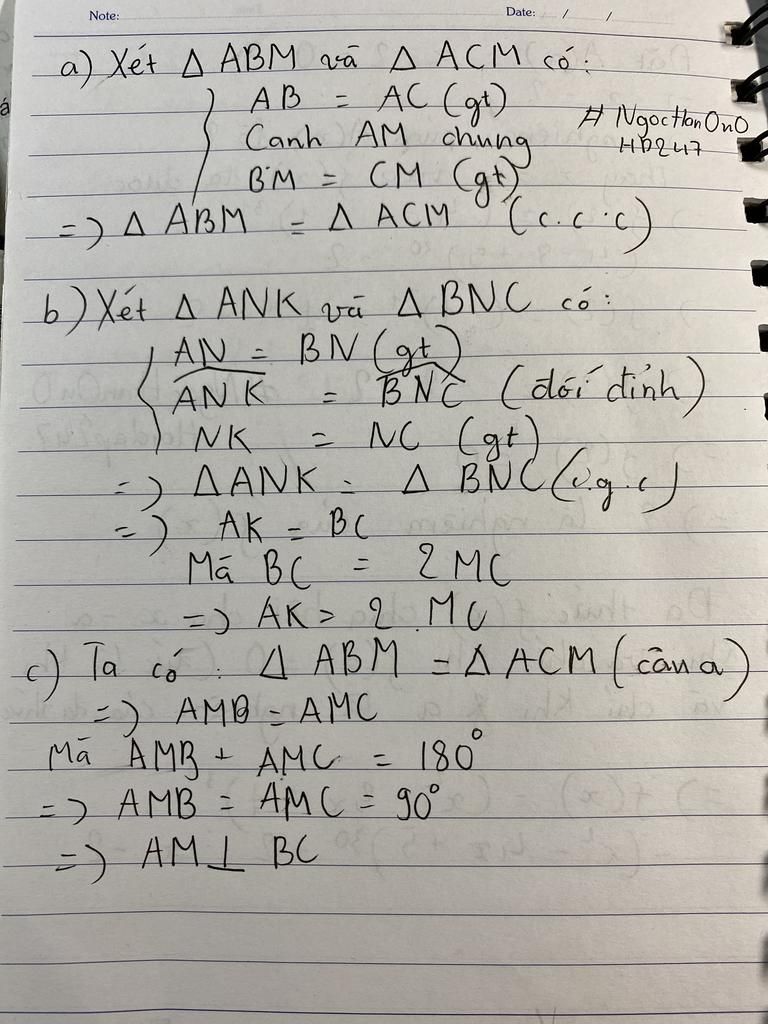 Note: Date: / /
a) Xét Δ ABM và Δ ACM có:
AB = AC (gt)
Cạnh AM chung
BM = CM (gt)
# NgocHanOnO
HD247
=) Δ ABM = Δ ACM (c.c.c)
b) Xét Δ ANK và Δ BNC có:
AN = BN (gt)
ANK = BNC (đối đỉnh)
NK = NC (gt)
=) ΔANK = Δ BNC (c.g.c)
=) AK = BC
Mà BC = 2 MC
=) AK = 2.MC
c) Ta có: Δ ABM = Δ ACM (câu a)
=) AMB = AMC
Mà AMB + AMC = 180°
=) AMB = AMC = 90°
=) AM ⊥ BC